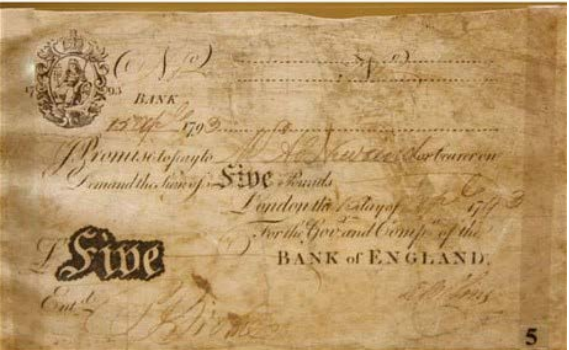 No
17 93
BANK
15 Apl 1793
I Promise to pay to or bearer on
Demand the Sum of Five Pounds
London the 15 day of Apl 1793
For the Govr. and Compa. of the
BANK of ENGLAND.
£ Five
Entd.
5